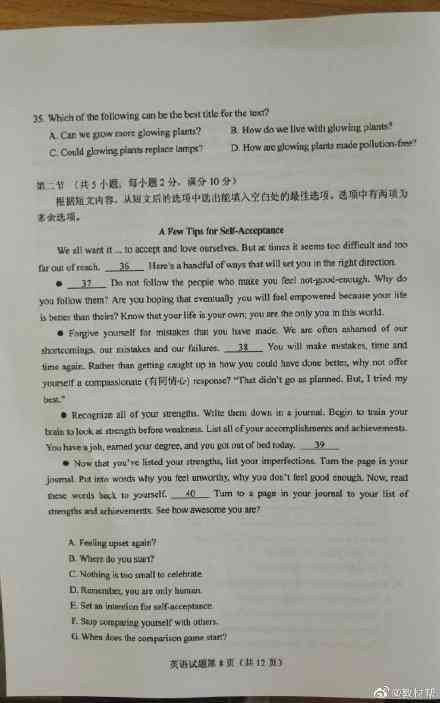 35. Which of the following can be the best title for the text?
A. Can we grow more glowing plants?
B. How do we live with glowing plants?
C. Could glowing plants replace lamps?
D. How are glowing plants made pollution-free?
第二节 (共 5 小题; 每小题 2 分, 满分 10 分)
根据短文内容, 从短文后的选项中选出能填入空白处的最佳选项。选项中有两项为
多余选项。
A Few Tips for Self-Acceptance
We all want it ... to accept and love ourselves. But at times it seems too difficult and too
far out of reach. 36 Here's a handful of ways that will set you in the right direction.
● 37 Do not follow the people who make you feel not-good-enough. Why do
you follow them? Are you hoping that eventually you will feel empowered because your life
is better than theirs? Know that your life is your own; you are the only you in this world.
● Forgive yourself for mistakes that you have made. We are often ashamed of our
shortcomings, our mistakes and our failures. 38 You will make mistakes, time and
time again. Rather than getting caught up in how you could have done better, why not offer
yourself a compassionate (有同情心) response? "That didn't go as planned. But, I tried my
best."
● Recognize all of your strengths. Write them down in a journal. Begin to train your
brain to look at strength before weakness. List all of your accomplishments and achievements.
You have a job, earned your degree, and you got out of bed today. 39
● Now that you've listed your strengths, list your imperfections. Turn the page in your
journal. Put into words why you feel unworthy, why you don't feel good enough. Now, read
these words back to yourself. 40 Turn to a page in your journal to your list of
strengths and achievements. See how awesome you are?
A. Feeling upset again?
B. Where do you start?
C. Nothing is too small to celebrate.
D. Remember, you are only human.
E. Set an intention for self-acceptance.
F. Stop comparing yourself with others.
G. When does the comparison game start?
英语试题第 8 页 (共 12 页)
@教材帮